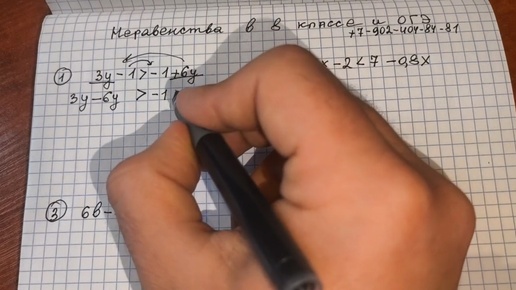 Неравенства в 8 классе и ОГЭ
+7-902-404-84-81
① 3y - 1 > -1 + 6y
3y - 6y > -1
x - 2 < 7 - 0,8x
③ 6в -